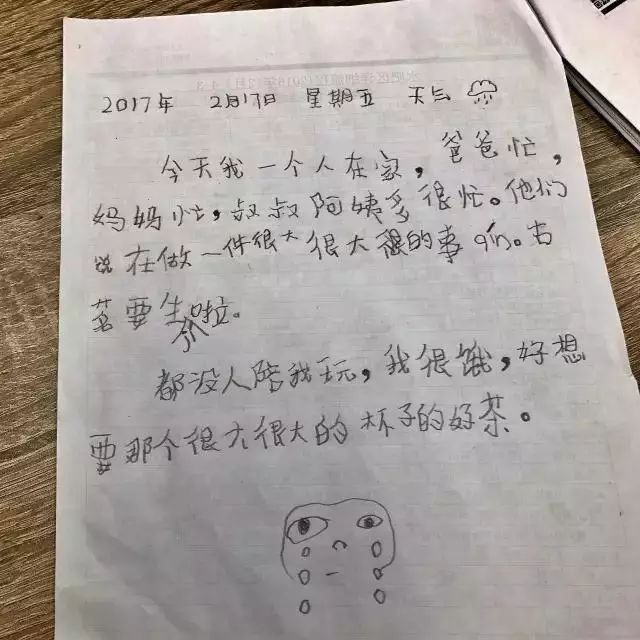 2017年 2月17日 星期五 天气
今天我一个人在家，爸爸忙，
妈妈忙，叔叔阿姨多很忙。他们
说在做一件很大很大很的事qín。古
茗要生啦。
都没人陪我玩，我很饿，好想
要那个很大很大的杯子的好茶。